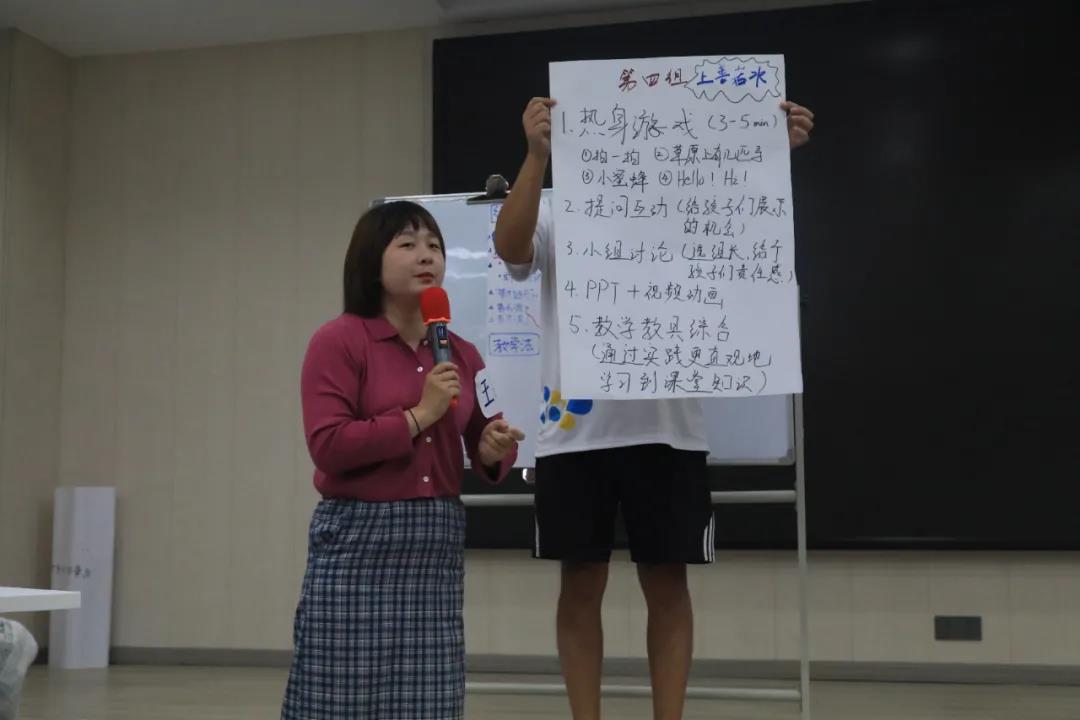 第四组 上善若水
1. 热身游戏 (3-5min)
①拍一拍 ②草原上有几匹马
③小蜜蜂 ④Hello! Hi!
2. 提问互动 (给孩子们展示
的机会)
3. 小组讨论 (选组长,给予
孩子们责任感)
4. PPT + 视频动画
5. 教学教具综合
(通过实践更直观地
学习到课堂知识)
教学法
王